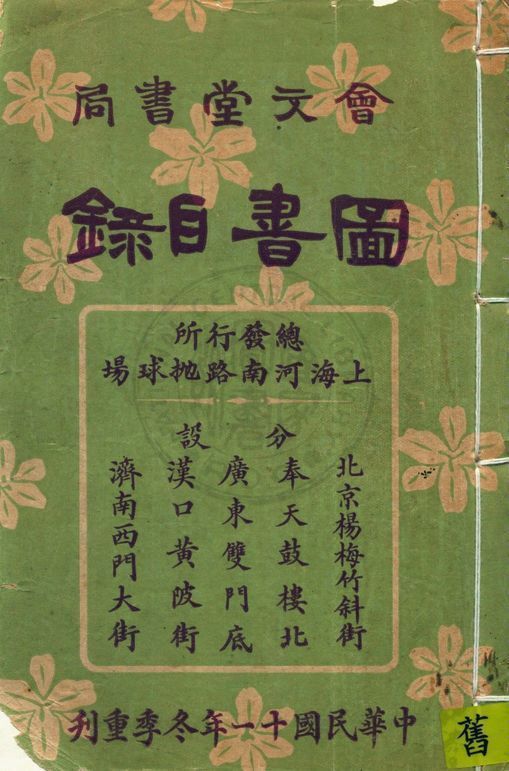 會文堂書局
圖書目錄
總發行所
上海河南路抛球場
分設
北京楊梅竹斜街
奉天鼓樓北
廣東雙門底
漢口黃陂街
濟南西門大街
中華民國十一年冬季重刋
舊